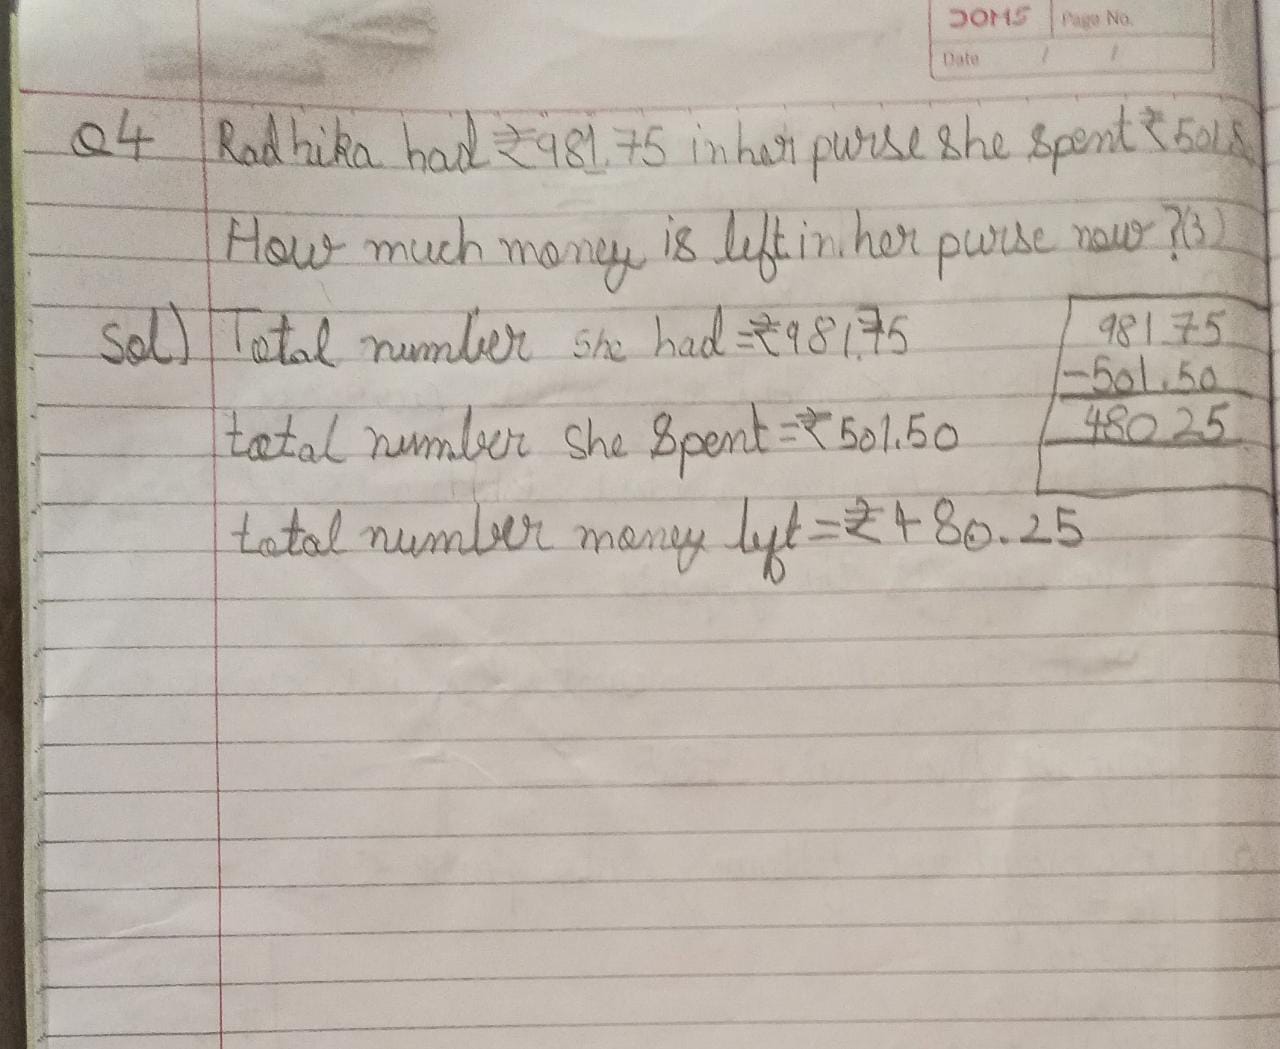 DOMS Page No.
Date / /
Q4 Radhika had ₹981.75 in her purse she spent ₹501.5
How much money is left in her purse now ?(3)
Sol) Total number she had =₹981.75
total number she spent =₹501.50
total number money lyt =₹480.25
981.75
-501.50
480 25